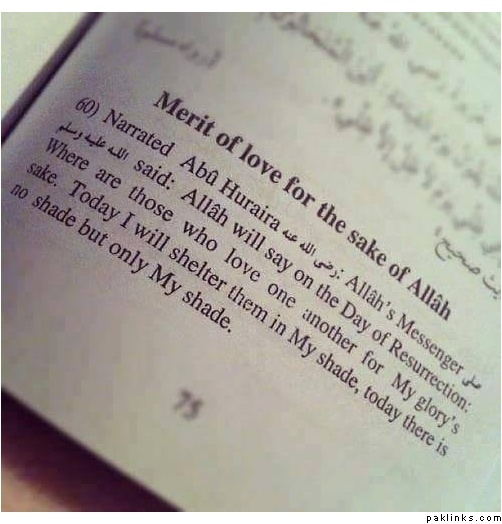 Merit of love for the sake of Allâh
60) Narrated Abû Huraira رضى الله عنه: Allâh's Messenger صلى
الله عليه وسلم said: Allâh will say on the Day of Resurrection:
Where are those who love one another for My glory's
sake. Today I will shelter them in My shade, today there is
no shade but only My shade.
75
paklinks.com